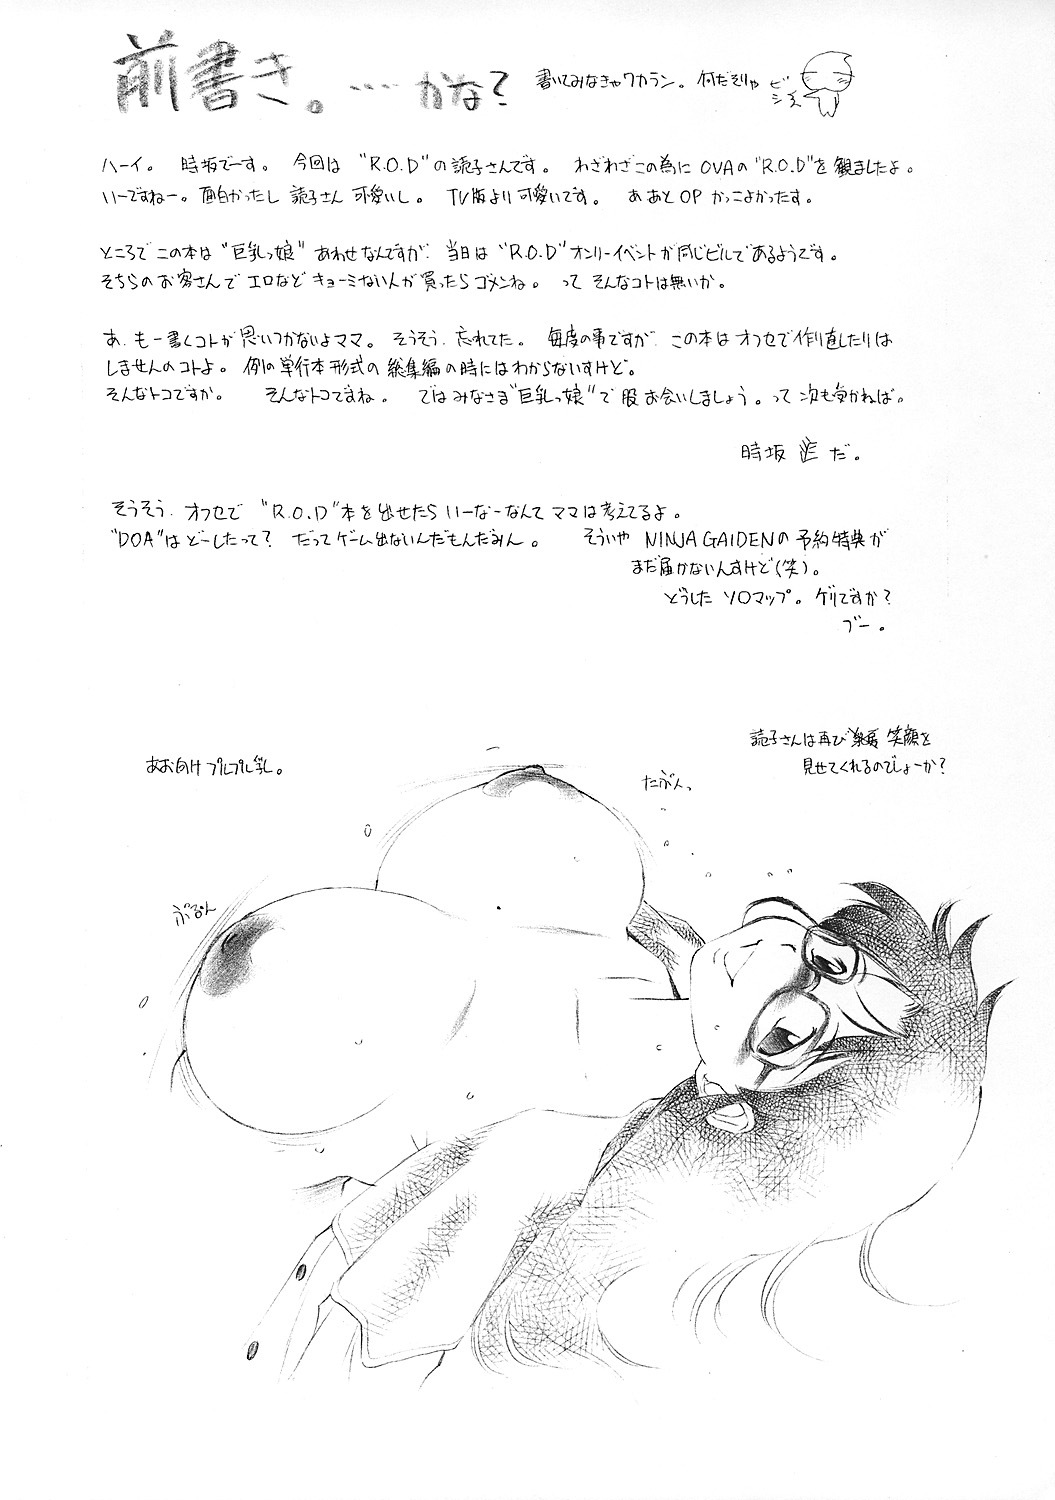 前書き。…… かな？
書いてみなきゃワカラン。何だそりゃ
ビシえ
ハーイ。 時坂でーす。 今回は "R.O.D"の読子さんです。 わざわざこの為に OVAの"R.O.D"を観ましたよ。
いーですねー。面白かったし 読子さん 可愛いし。 TV版より可愛いです。 あ あとOP かっこよかったす。
ところで この本は"巨乳っ娘"あわせなんですが、当日は "R.O.D"オンリーイベントが同じビルであるようです。
そちらのお客さんで エロなど キョーミない人が買ったらゴメンね。 って そんなコトは無いか。
あ、もー書くコトが思いつかないよママ。 そうそう、忘れてた。 毎度の事ですが、この本はオフセで作り直したりは
しませんのコトよ。 例の単行本形式の総集編の時にはわからないすけど。
そんなトコですか。 そんなトコですね。 では みなさま"巨乳っ娘"で 股お会いしましょう。って 次も受かれば。
時坂 だ。
そうそう、オフセで "R.O.D"本を出せたら いーなーなんて ママは考えてるよ。
"DOA"はどーしたって？ だってゲーム出ないんだもんだみん。 そういや NINJA GAIDENの予約特典が
まだ届かないんすけど(笑)。
どうした ソロマップ。ゲリですか？
ブー。
読子さんは再び 笑顔を
見せてくれるのでしょーか？
あお向けプルプル乳。
たぷんっ
ぷるん